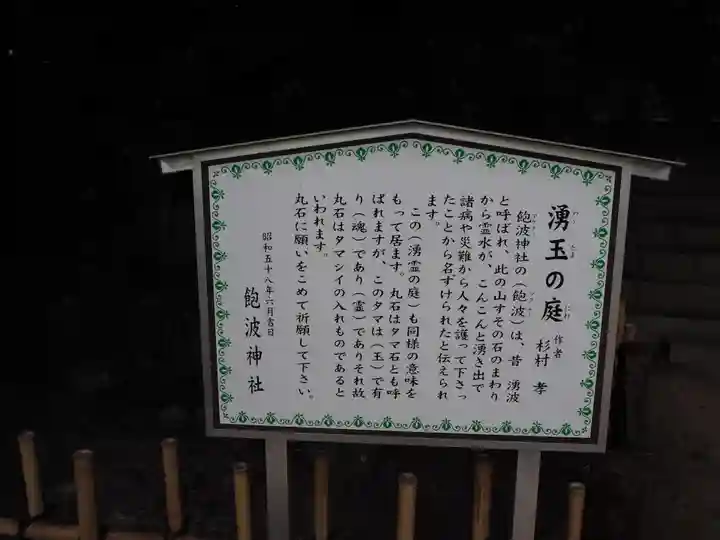 湧玉の庭
作者 杉村 孝
飽波神社の(飽波)は、昔 湧波
と呼ばれ、此の山すその石のまわり
から霊水が、こんこんと湧き出で
諸病や災難から人々を護って下さっ
たことから名ずけられたと伝えられ
ます。
この(湧霊の庭)も同様の意味を
もって居ます。丸石はタマ石とも呼
ばれますが、このタマは(玉)で有
り(魂)であり(霊)でありそれ故
丸石はタマシイの入れものであると
いわれます。
丸石に願いをこめて祈願して下さい。
昭和五十八年六月吉日
飽波神社